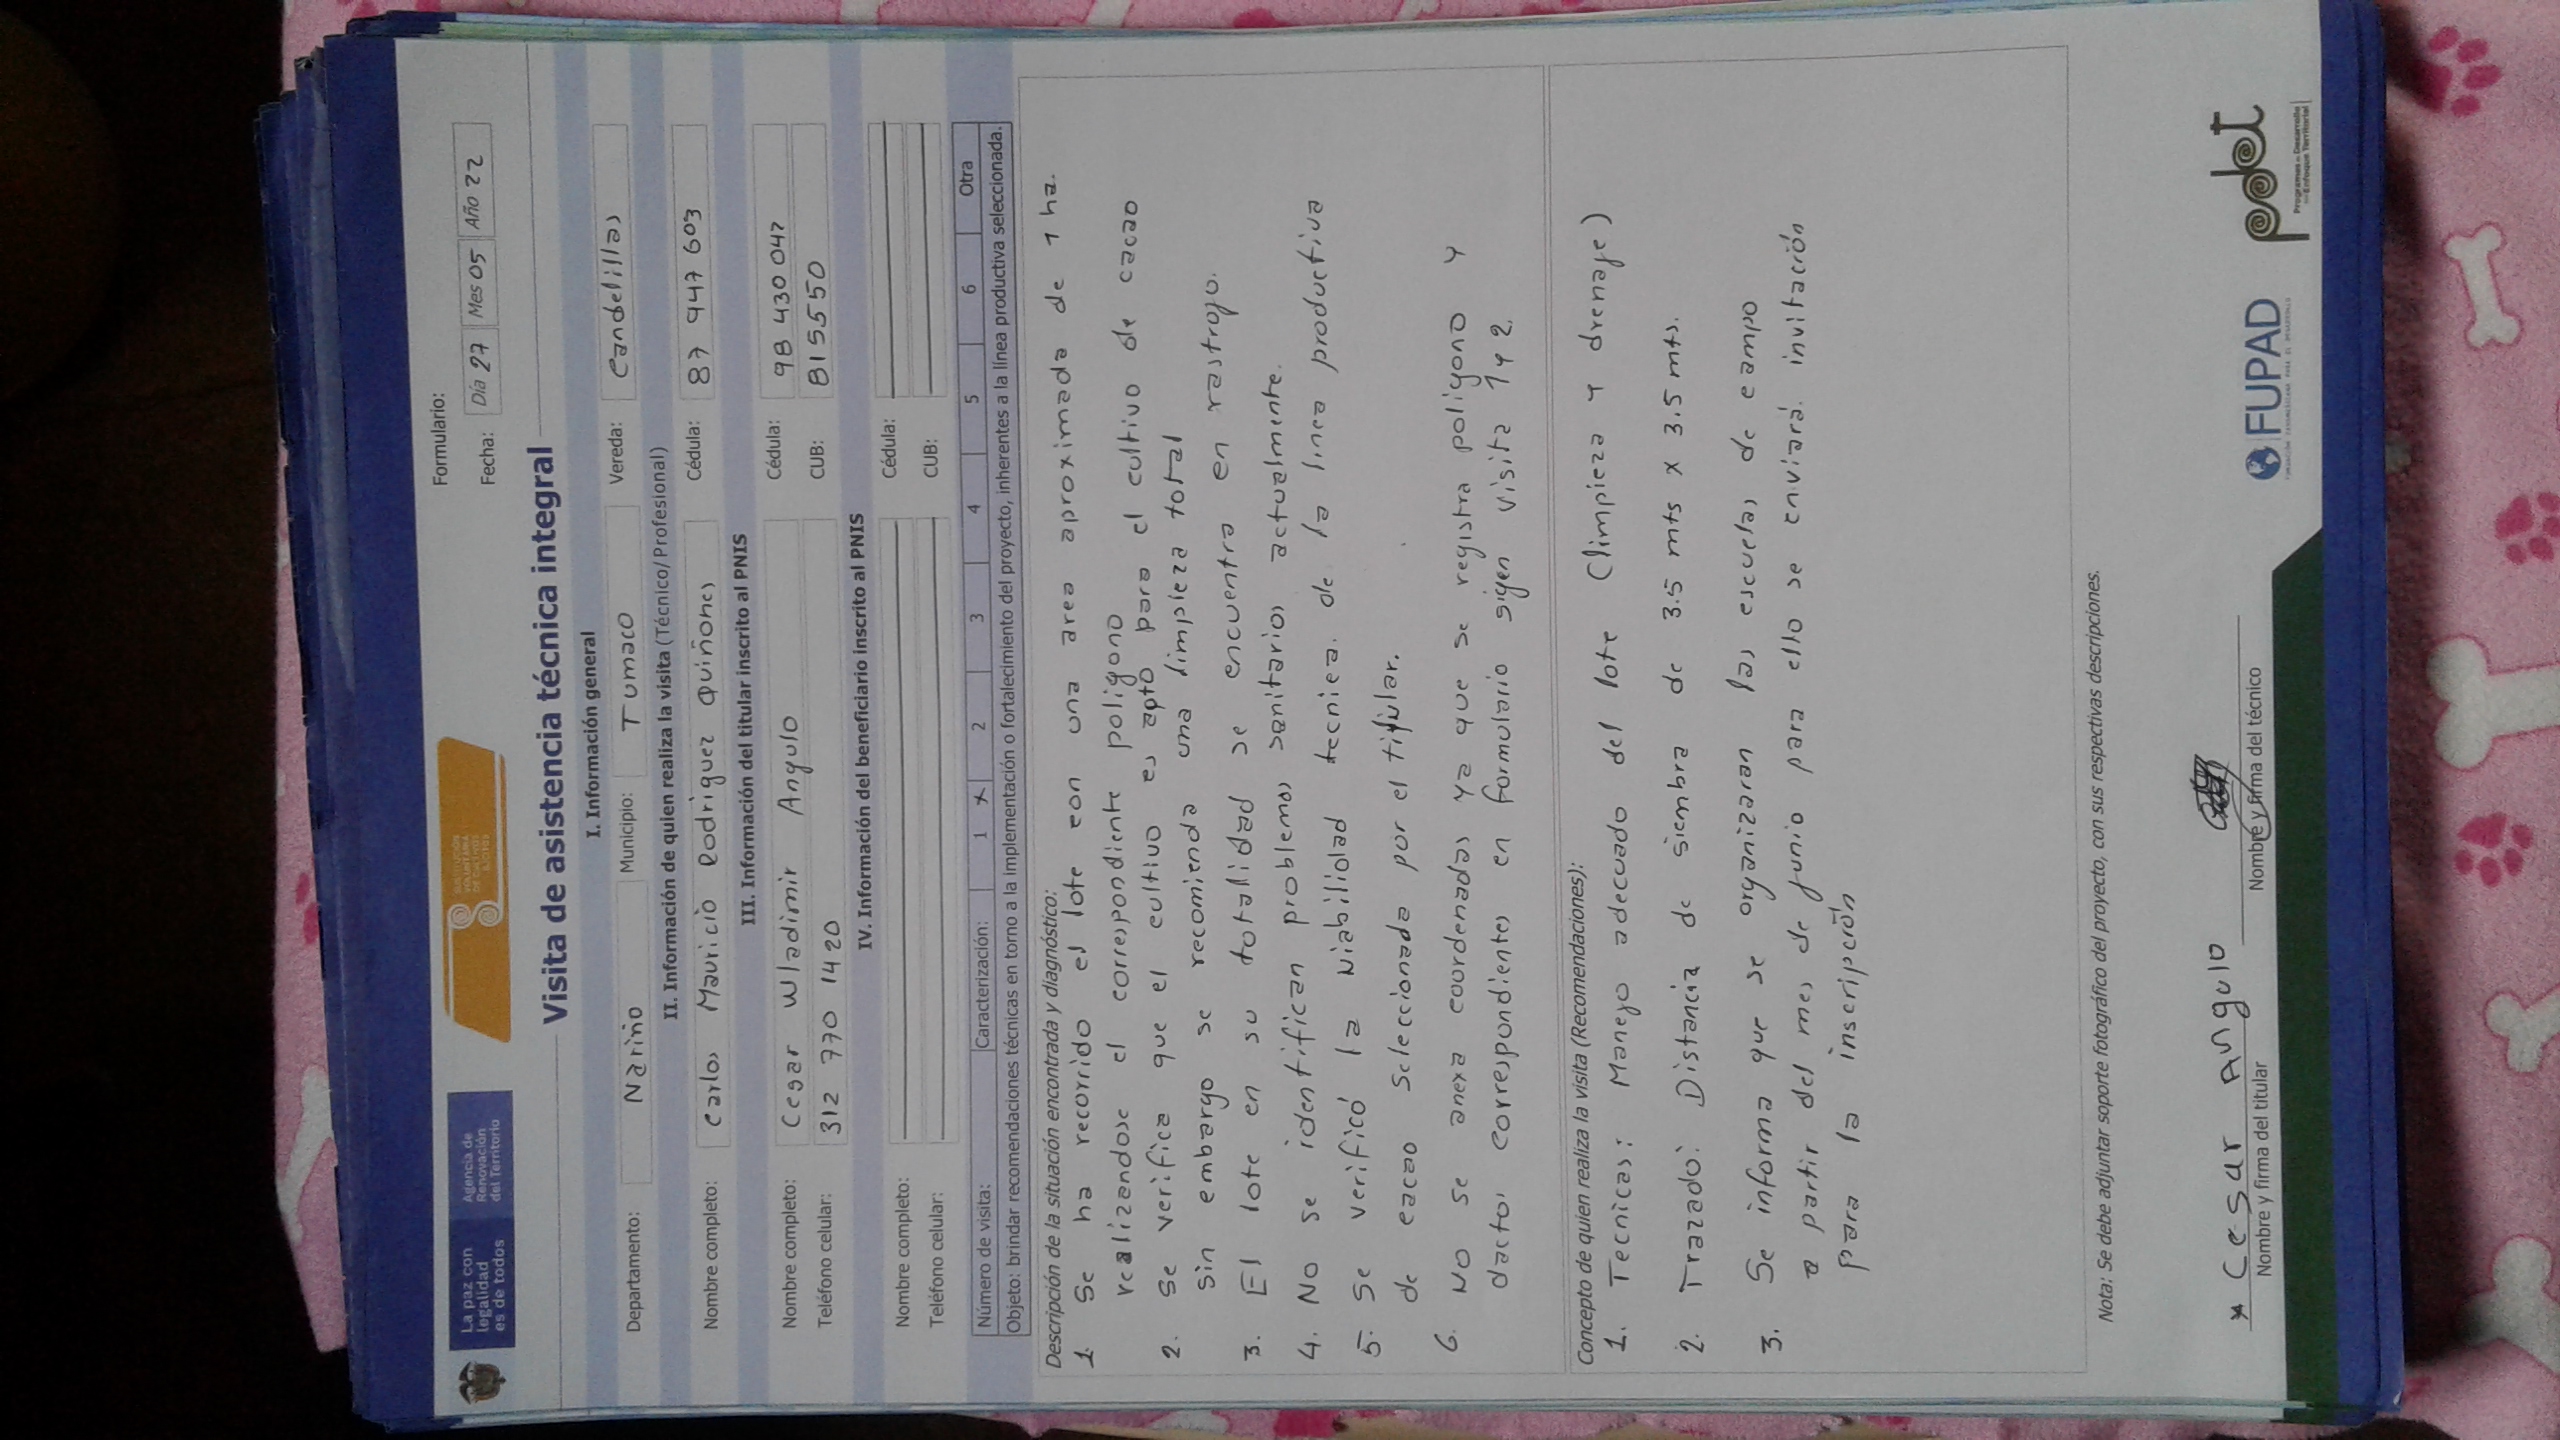 La paz con
legalidad
es de todos
Agencia de
Renovación
del Territorio
SUSTITUCIÓN
VOLUNTARIA
DE CULTIVOS
ILÍCITOS
Formulario:
Fecha: Día 27 Mes 05 Año 22
Visita de asistencia técnica integral
I. Información general
Departamento: Nariño Municipio: Tumaco Vereda: Candelillas
II. Información de quien realiza la visita (Técnico/Profesional)
Nombre completo: Carlos Mauricio Rodriguez Quiñones Cédula: 87 947 603
III. Información del titular inscrito al PNIS
Nombre completo: Cesar Wladimir Angulo Cédula: 98 430 047
Teléfono celular: 312 770 1420 CUB: 815550
IV. Información del beneficiario inscrito al PNIS
Nombre completo: Cédula:
Teléfono celular: CUB:
Número de visita: Caracterización: 1 X 2 3 4 5 6 Otra
Objeto: brindar recomendaciones técnicas en torno a la implementación o fortalecimiento del proyecto, inherentes a la línea productiva seleccionada.
Descripción de la situación encontrada y diagnóstico:
1. Se ha recorrido el lote con una area aproximada de 1 ha.
realizandose el correspondiente poligono
2. Se verifica que el cultivo es apto para el cultivo de cacao
sin embargo se recomienda una limpieza total
3. El lote en su totalidad se encuentra en rastrojo.
4. No se identifican problemas sanitarios actualmente.
5. Se verificó la viabilidad tecnica. de la linea productiva
de cacao seleccionada por el titular.
6. No se anexa coordenadas ya que se registra poligono y
dactos correspondientes en formulario sigen visita 1 y 2.
Concepto de quien realiza la visita (Recomendaciones):
1. Tecnicas: Manejo adecuado del lote (limpieza y drenaje)
2. Trazado: Distancia de siembra de 3.5 mts x 3.5 mts.
3. Se informa que se organizaran las escuelas de campo
a partir del mes de junio para ello se enviará. invitación
para la inscripción
Nota: Se debe adjuntar soporte fotográfico del proyecto, con sus respectivas descripciones.
x Cesar Angulo
Nombre y firma del titular
Nombre y firma del técnico
FUPAD
FUNDACIÓN PANAMERICANA PARA EL DESARROLLO
pdet
Programas de Desarrollo
con Enfoque Territorial